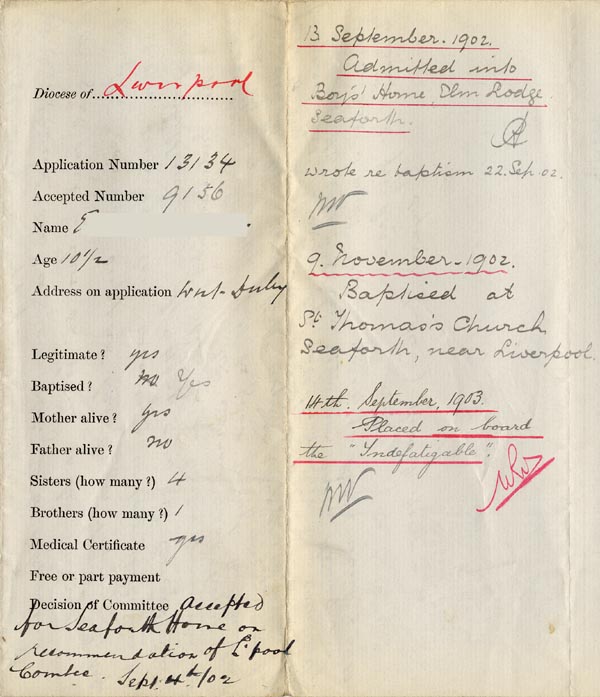 Diocese of Liverpool
Application Number 13134
Accepted Number 9156
Name E
Age 10 1/2
Address on application West-Derby
Legitimate? yes
Baptised? no Yes
Mother alive? yes
Father alive? no
Sisters (how many?) 4
Brothers (how many?) 1
Medical Certificate yes
Free or part payment
Decision of Committee Accepted
for Seaforth Home on
recommendation of L'pool
Comtee. Sept. 4th/02
13 September. 1902.
Admitted into
Boys' Home, Elm Lodge.
Seaforth.
wrote re baptism 22. Sep. 02.
9. November. 1902.
Baptised at
St. Thomas's Church
Seaforth, near Liverpool.
14th. September, 1903.
Placed on board
the "Indefatigable".